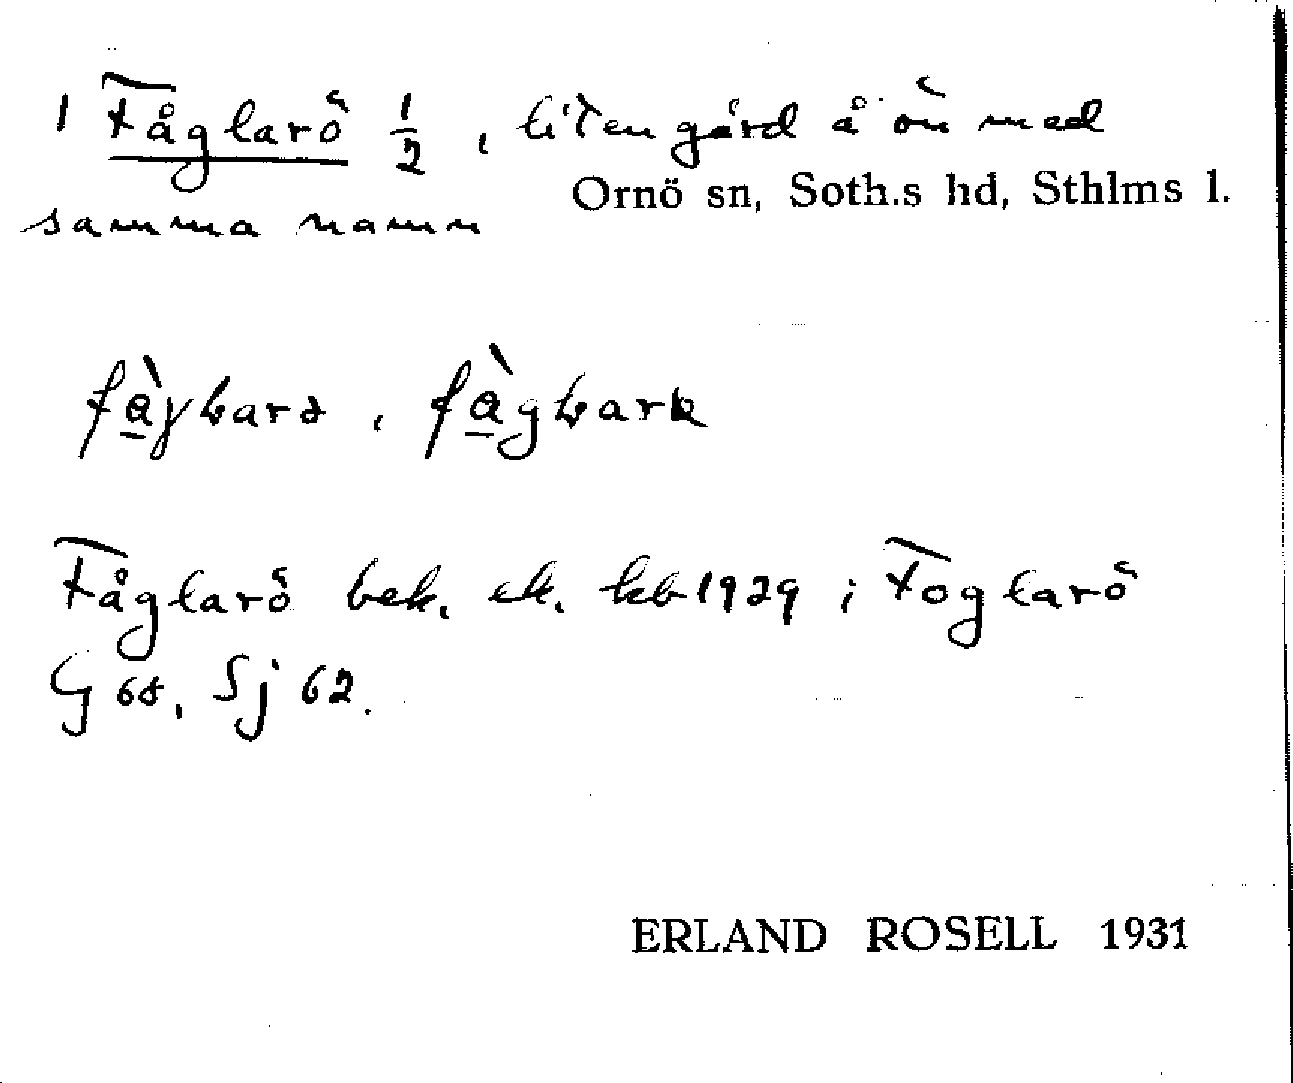 1 Fåglarö 1/2, liten gård å ön med
Ornö sn, Soth.s hd, Sthlms l.
samma namn
Fåglarö bek. ek. kb 1929; Foglarö
G 68, Sj 62.
ERLAND ROSELL 1931